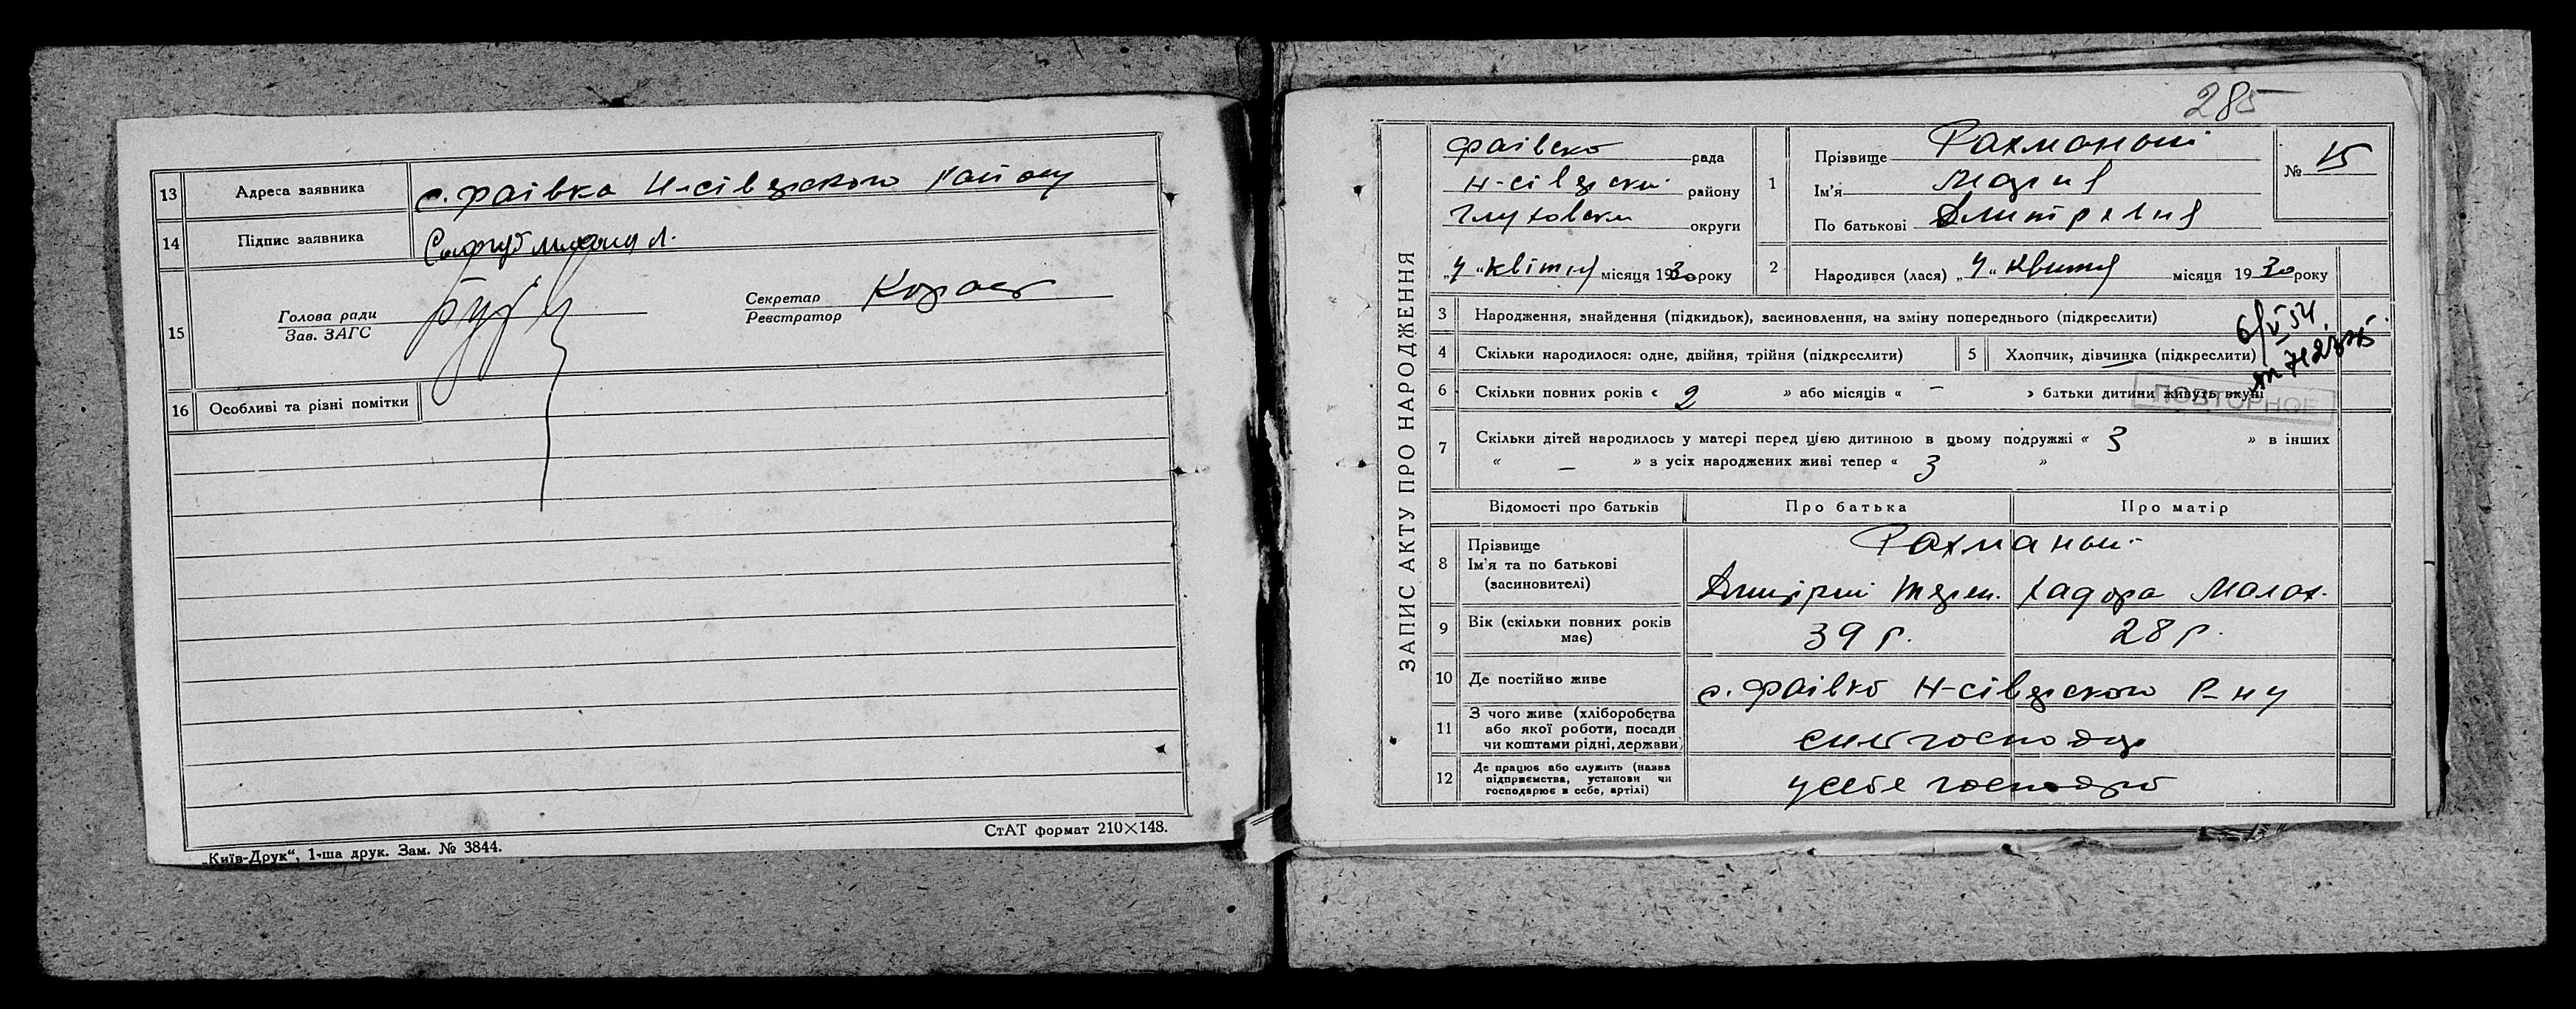 13 Адреса заявника с. Фаівка Н-сіверского Району
14 Підпис заявника
15 Голова ради
Зав. ЗАГС
Секретар
Реєстратор
16 Особливі та різні помітки
СтАТ формат 210×148.
„Київ-Друк“, 1-ша друк. Зам. № 3844.
285
ЗАПИС АКТУ ПРО НАРОДЖЕННЯ
Фаівско рада
Н-сіверски району
Глуховски округи
„4“ квітня місяця 1930 року
1 Прізвище Рахманый
Ім'я Мария
По батькові
№ 15
2 Народився (лася) „4“ Квитня місяця 1930 року
3 Народження, знайдення (підкидьок), засиновлення, на зміну попереднього (підкреслити)
6/V 54.
4 Скільки народилося: одне, двійня, трійня (підкреслити)
5 Хлопчик, дівчинка (підкреслити)
6 Скільки повних років « 2 » або місяців « – » батьки дитини живуть вкупі
ПОВТОРНОЕ
7 Скільки дітей народилось у матері перед цією дитиною в цьому подружжі « 3 » в інших
« – » з усіх народжених живі тепер « 3 »
Відомості про батьків Про батька Про матір
8 Прізвище
Ім'я та по батькові
(засиновителі)
Рахманый
Терен. Хадора Малах.
9 Вік (скільки повних років має) 39 р. 28 р.
10 Де постійно живе с. Фаівко Н-сіверского Р-ну
11 З чого живе (хліборобства
або якої роботи, посади
чи коштами рідні, держави)
12 Де працює або служить (назва
підприємства, установи чи
господарює в себе, артілі)
у себе